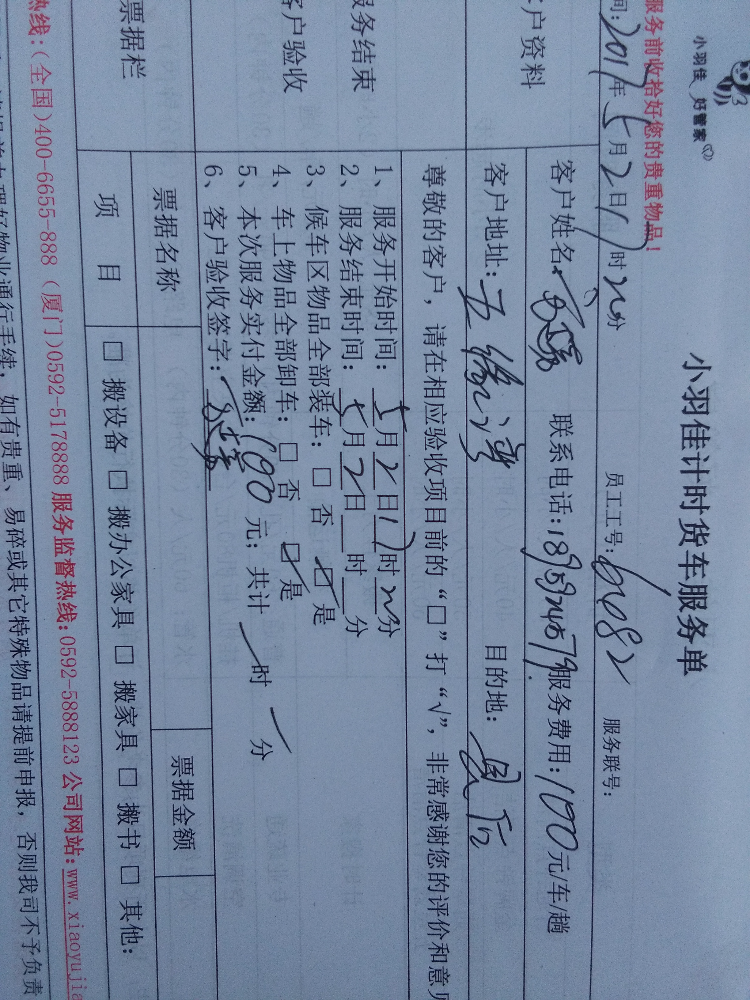 小羽佳 好管家
小羽佳计时货车服务单
服务前收拾好您的贵重物品!
间: 2017年5月2日17时 分 员工工号: 6082 服务联号:
户资料 客户姓名: 联系电话: 服务费用: 100元/车/趟
客户地址: 五缘湾 目的地:
尊敬的客户, 请在相应验收项目前的“□”打“√”, 非常感谢您的评价和意见
服务结束
客户验收
1、服务开始时间: 5月2日17时 分
2、服务结束时间: 5月2日 时 分
3、候车区物品全部装车: □ 否 ☑ 是
4、车上物品全部卸车: □ 否 ☑ 是
5、本次服务实付金额: 100 元; 共计 / 时 / 分
6、客户验收签字:
票据栏 票据名称 票据金额
项 目 □ 搬设备 □ 搬办公家具 □ 搬家具 □ 搬书 □ 其他:
热线:(全国)400-6655-888 (厦门)0592-5178888 服务监督热线:0592-5888123 公司网站:www.xiaoyujia
请提前办理好物业通行手续, 如有贵重、易碎或其它特殊物品请提前申报, 否则我司不予负责